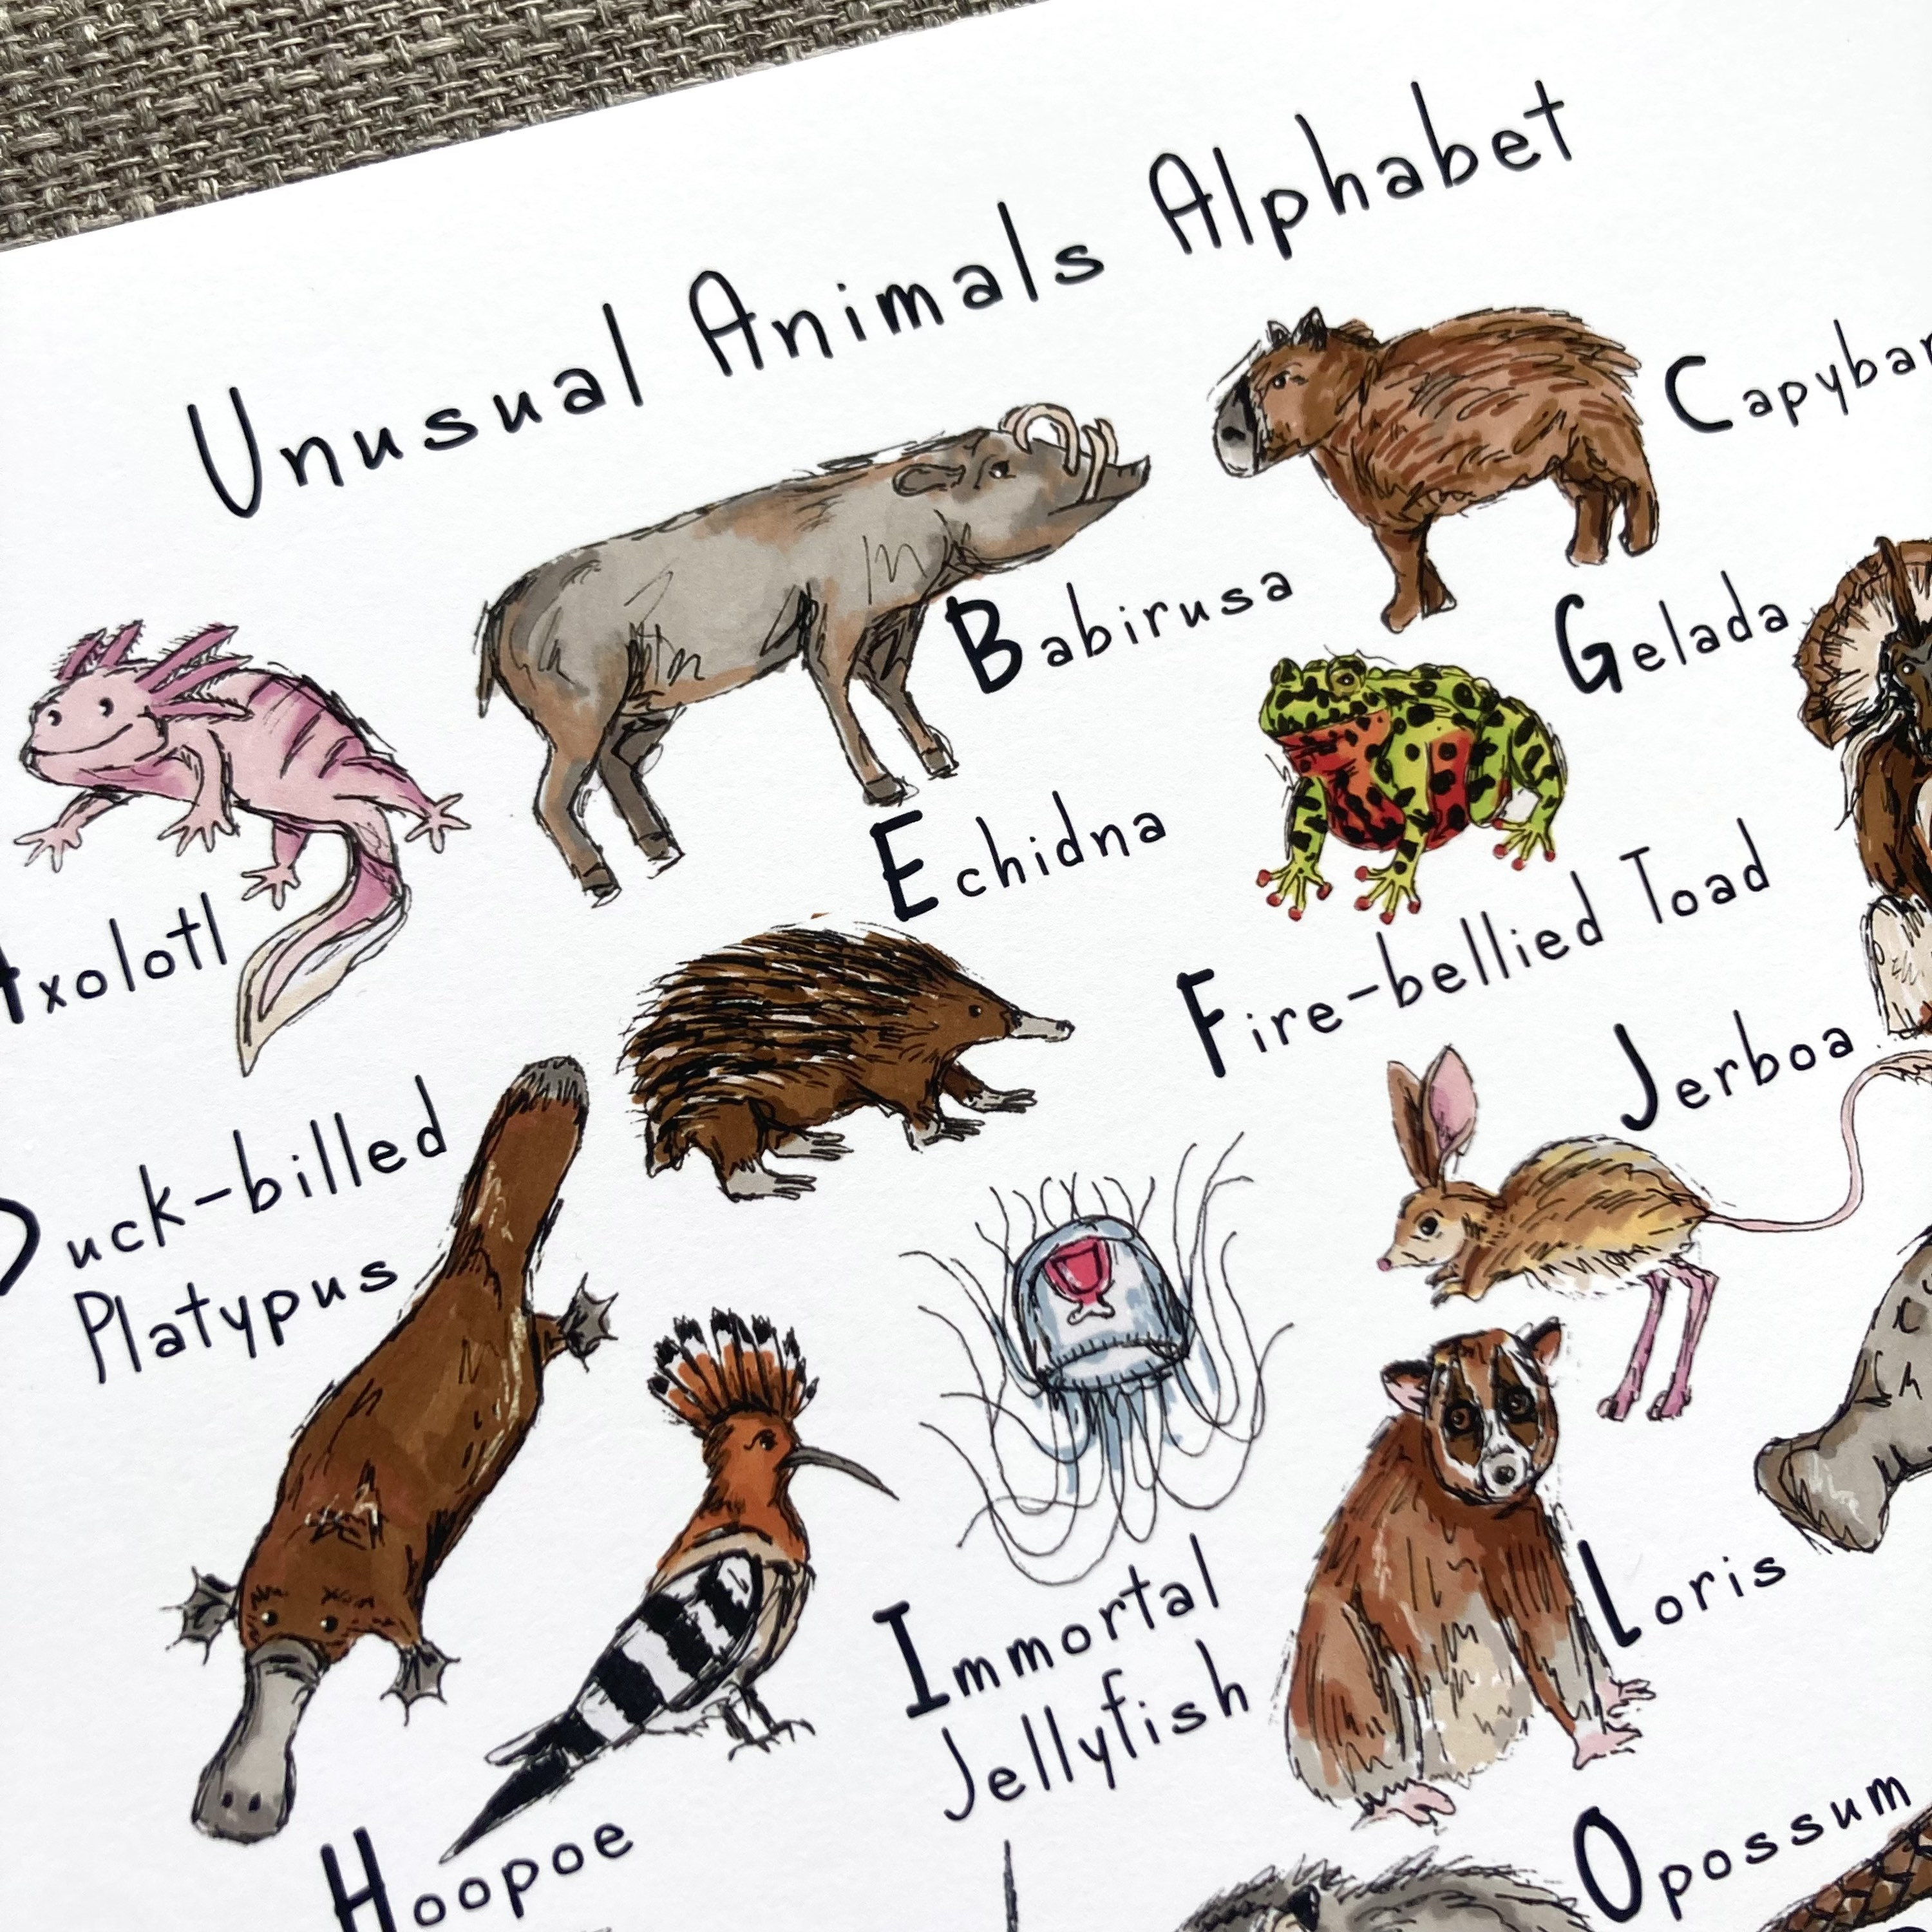 Unusual Animals Alphabet
Axolotl
Babirusa
Capybar
Duck-billed
Platypus
Echidna
Fire-bellied Toad
Gelada
Hoopoe
Immortal
Jellyfish
Jerboa
Loris
Opossum